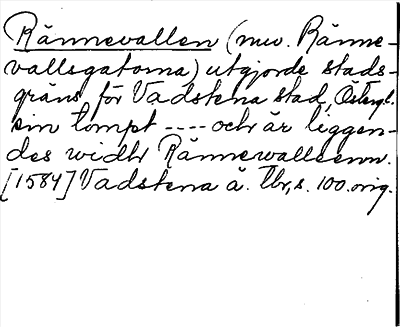 Rännevallen (nuv. Ränne-
vallsgatorna) utgjorde stads-
gräns för Vadstena stad, Östergl.
sin tompt ---- och är liggen-
des widh Rännewalleenn.
[1584] Vadstena ä. Tbr, s. 100. orig.